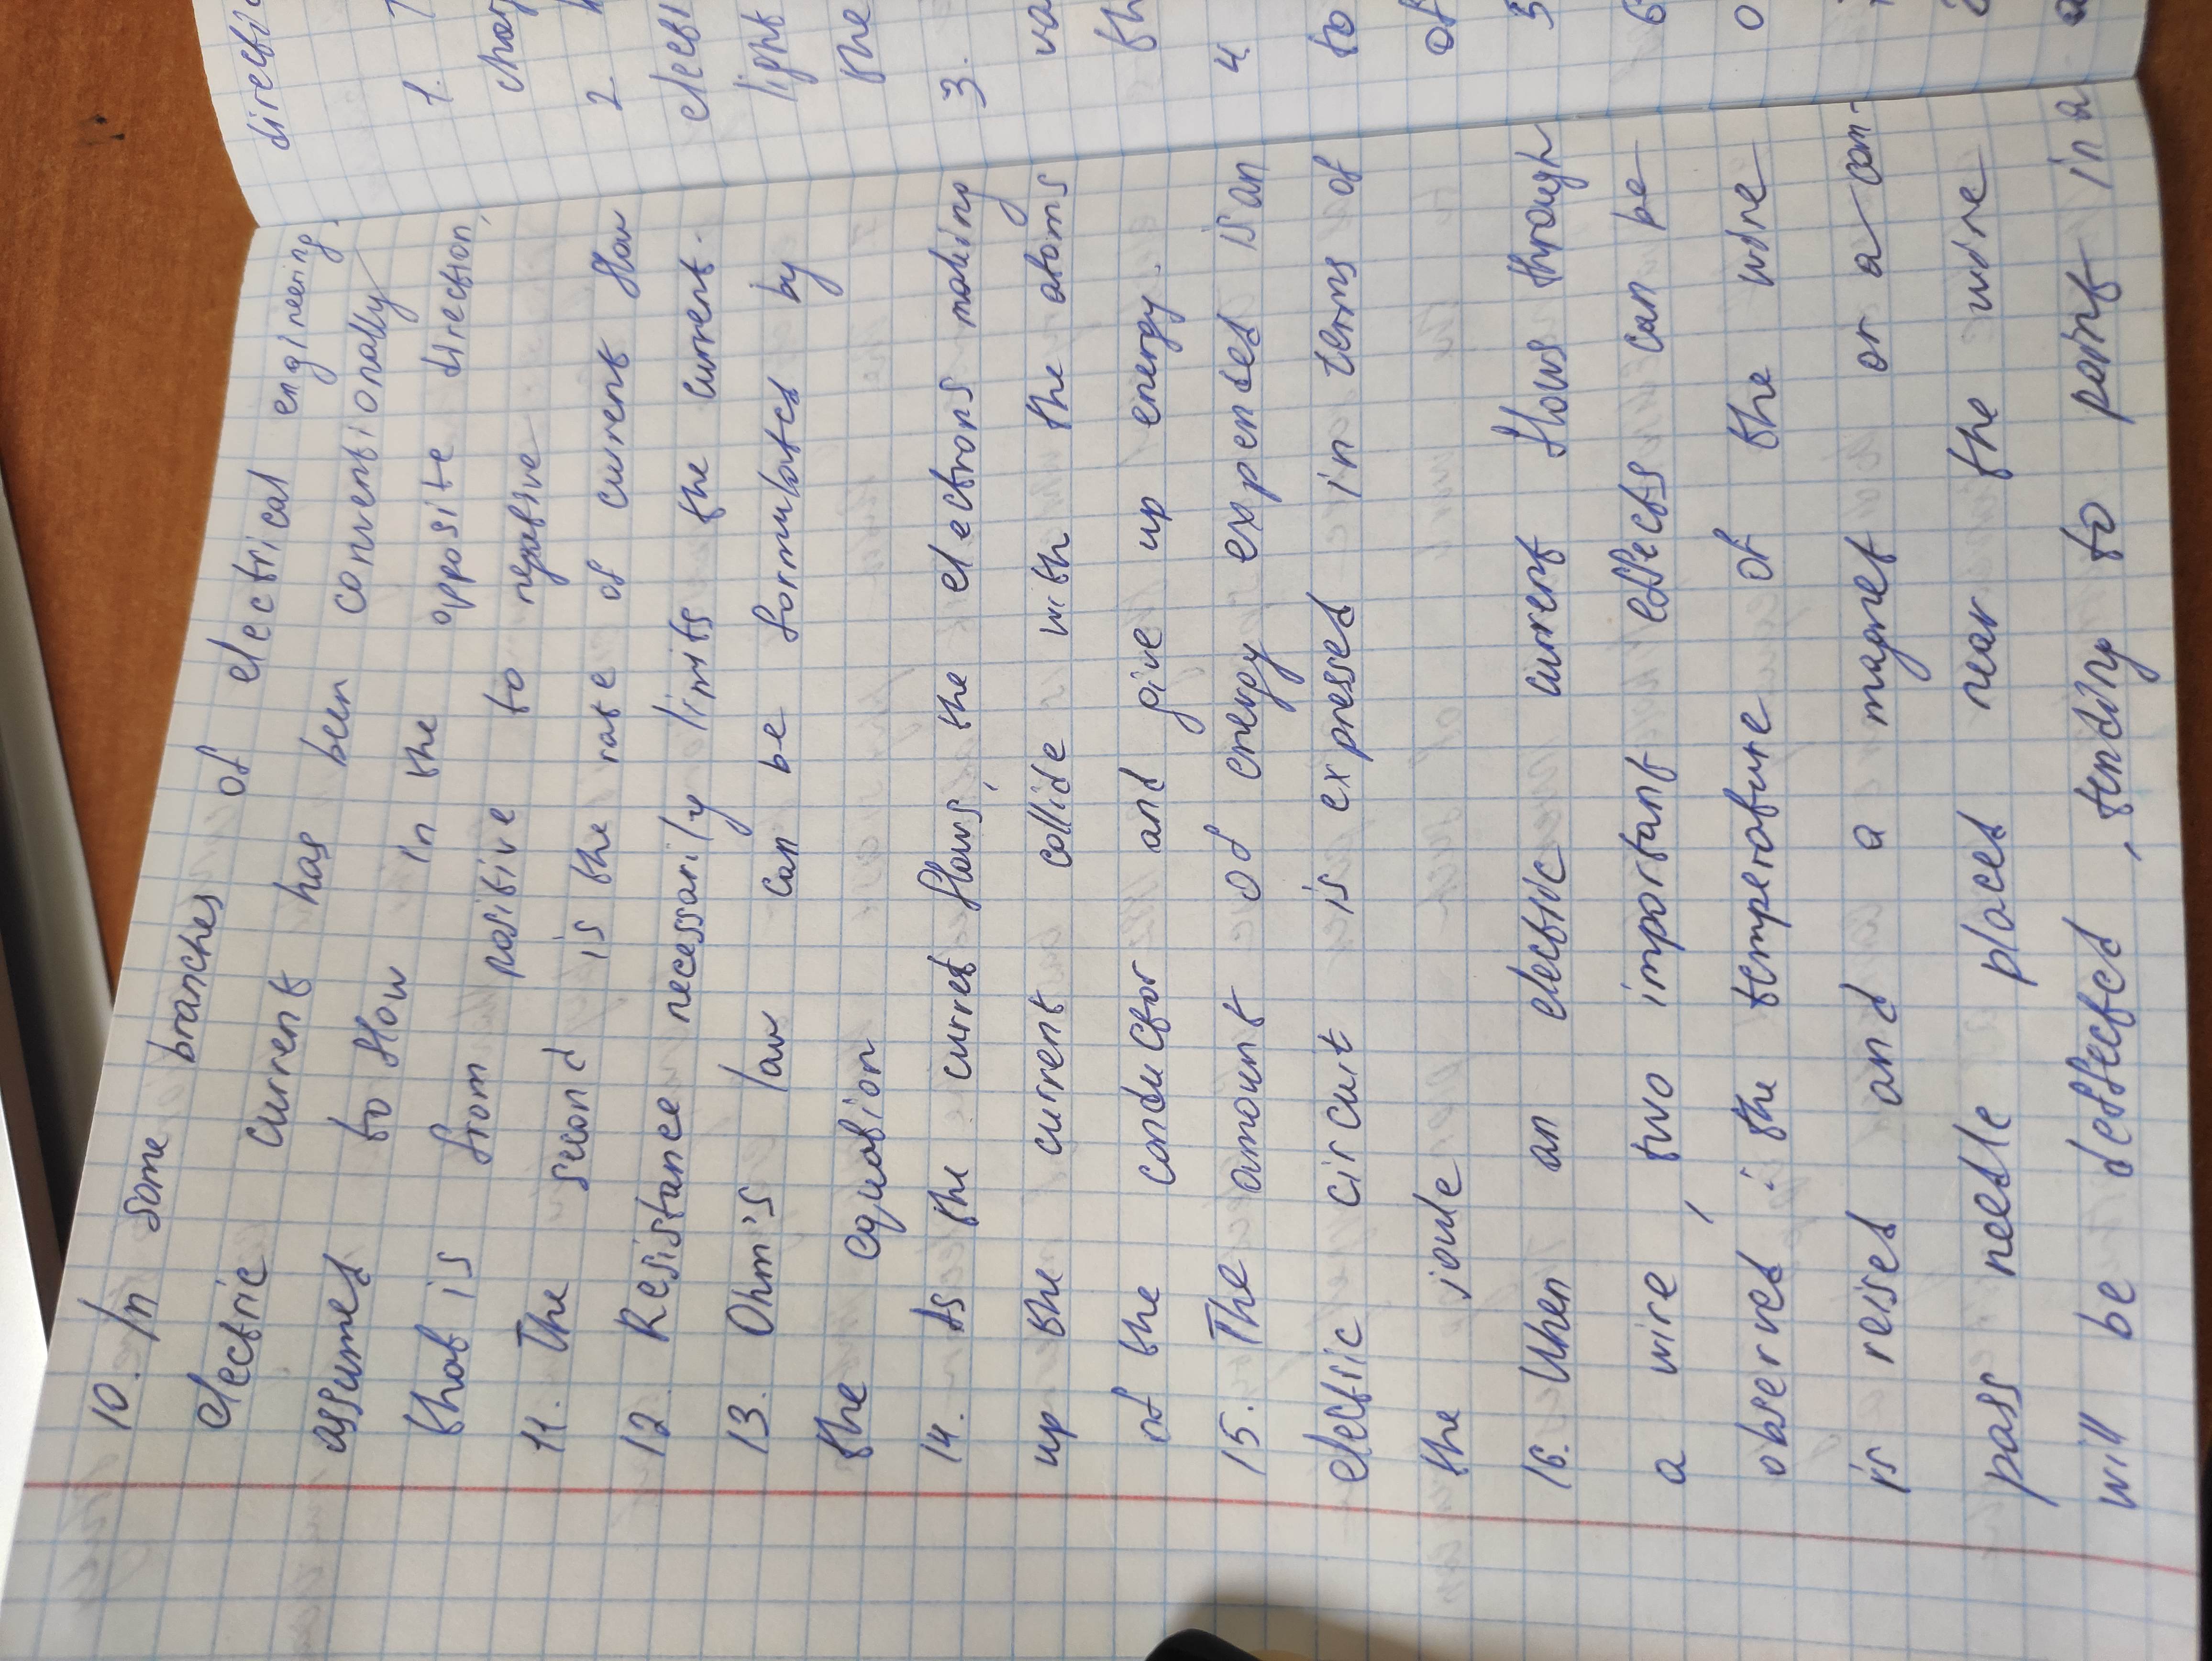 10. In some branches of electrical engineering,
electric current has been conventionally
assumed to flow in the opposite direction,
that is from positive to negative
11. The second is the rate of current flow
12. Resistance necessarily limits the current.
13. Ohm's law can be formulated by
the equation
14. As the curret flows, the electrons making
up the current collide with the atoms
of the conductor and give up energy.
15. The amount of energy expended is an
electric circuit is expressed in terms of
the joule
16. When an electric current flows through
a wire, two important effects can be
observed: the temperature of the wire
is reised and a magnet or a com-
pass needle placed near the wire
will be deflected, tending to point in a
directio
1.
2.
electi
light
the
3.
th
4.
to
of
5
6